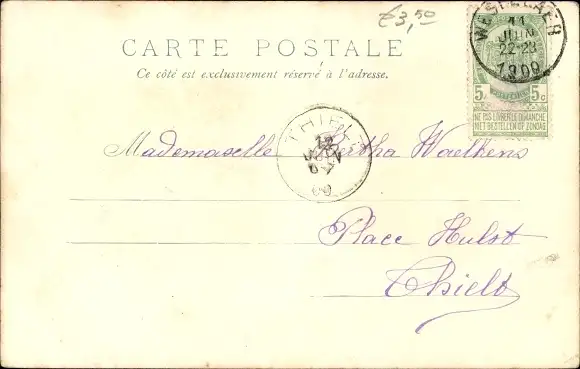 €3,50
CARTE POSTALE
Ce côté est exclusivement réservé à l'adresse.
11
JUIN
22-23
5c 5c
NE PAS LIVRER LE DIMANCHE
NIET BESTELLEN OP ZONDAG
THIELT
12
Mademaselle Bertha Waelkens
Place Hulst
Thielt